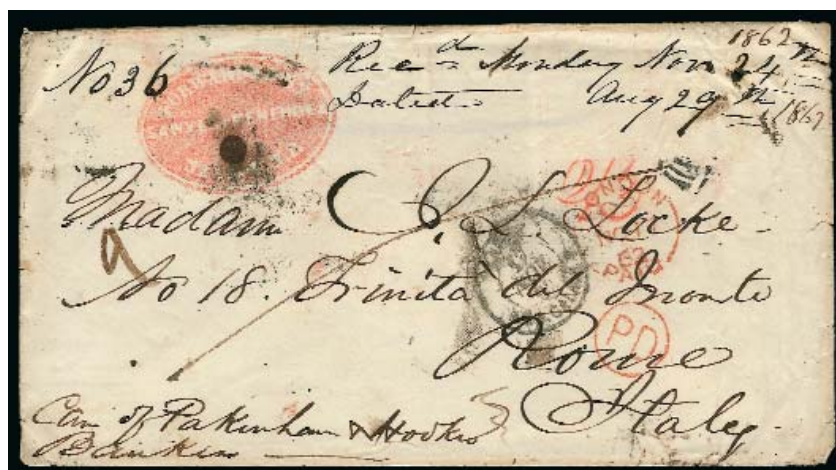 1862
No 36
Recd Monday Nov 24th
Dated Aug 29th 1862
Madam J. L. Locke
No 18. Trinita del Monte
Rome
Italy
LONDON
PAID
PD
Care of Pakenham & Hooker
Bankers